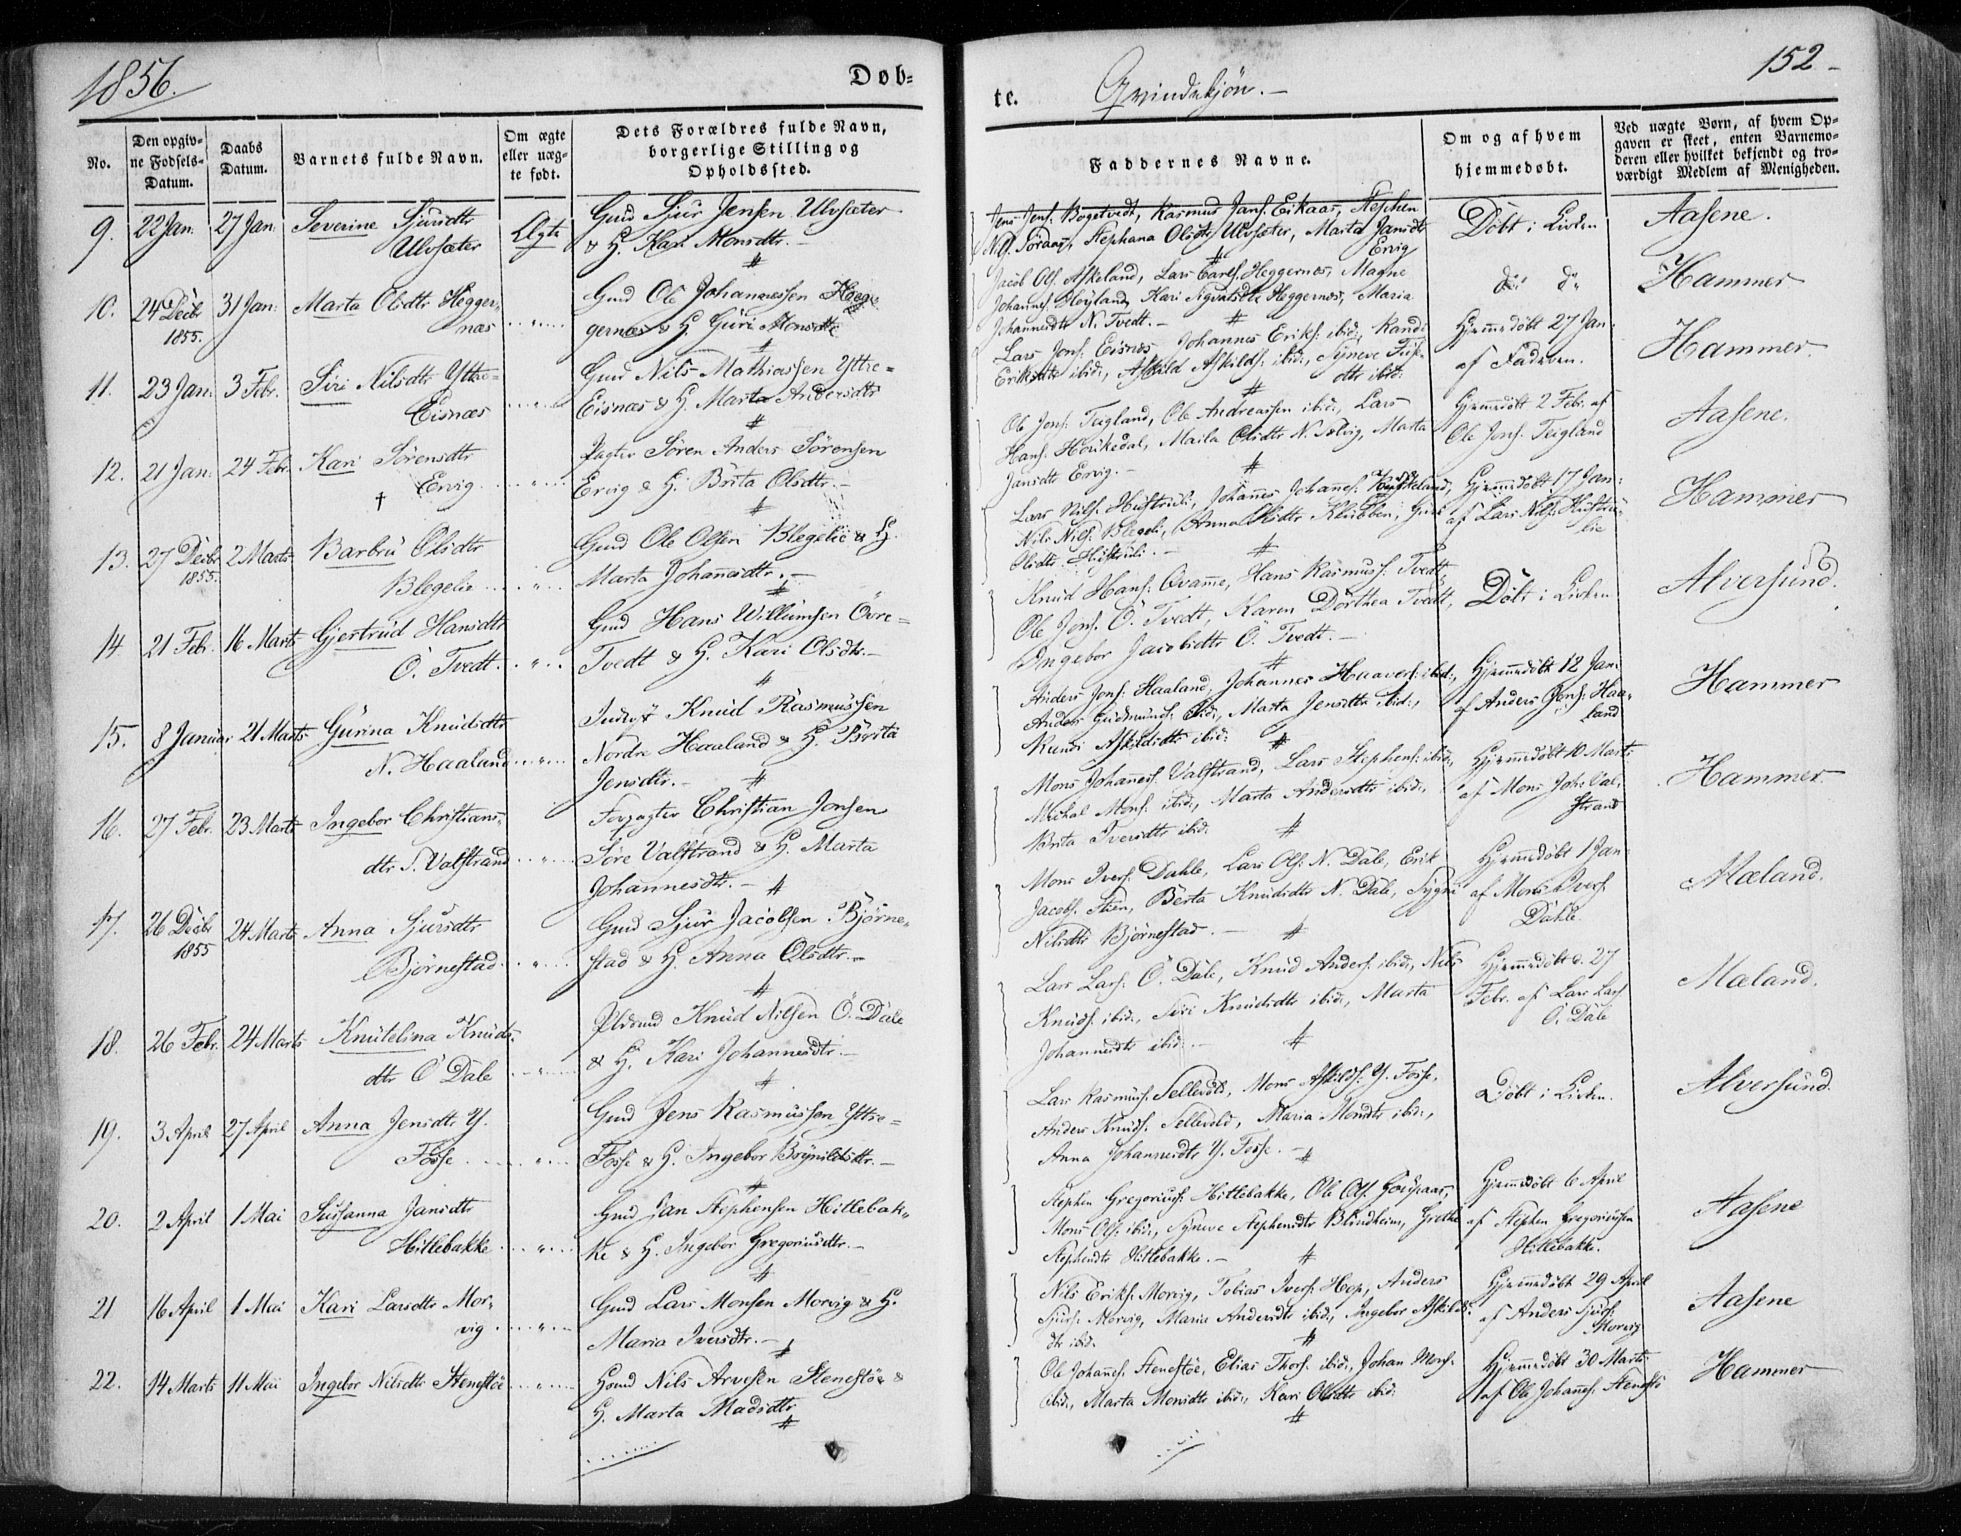 1856.
Døb-
te.
Qvindekjøn.
152
No.
Den opgiv-
ne Fødsels-
Datum.
Daabs
Datum.
Barnets fulde Navn.
Om ægte
eller uæg-
te født.
Dets Forældres fulde Navn,
borgerlige Stilling og
Opholdssted.
Faddernes Navne.
Om og af hvem
hjemmedøbt.
Ved uægte Børn, af hvem Op-
gaven er skeet, enten Barnemo-
deren eller hvilket bekjendt og tro-
værdigt Medlem af Menigheden.
9. 22 Jan. 27 Jan. Severine Sjursdtr
Ulvsæter
Ægte
Gmd Sjur Jensen Ulvsæter
& H. Kari Monsdtr. -
Stephana Olsdtr Ulvsæter, Marta Jansdtr
Ervig
Døbt i Kirken
Aasene.
10. 24 Decbr 1855. 31 Jan. Marta Olsdtr Hegger-
næs
Gmd Ole Johannessen Heg-
gernæs & H Guri Monsdtr
Jacob Ols. Askeland, Lars Heggernæs, Magne
Johannes. Høyland, Kari Heggernæs, Maria
Johannesdtr N. Tvedt. -
do do
Hammer
11. 23 Jan. 3 Febr. Siri Nilsdtr Yttre-
Eisnæs
Gmd Nils Mathiassen Yttre-
Eisnæs & H. Marta Andersdtr
Lars Jons. Eisnæs Johannes Eriks. ibid:,
Eriksdtr ibid:, Askild Askilds. ibid:, Synneve
dtr ibid:
Hjemmedøbt 27 Jan:
af Faderen.
Hammer.
12. 21 Jan. 24 Febr. Kari Sørensdtr
Ervig
†
Søren Anders Sørensen
Ervig & H. Brita Olsdtr. -
Ole Jons. Teigland, Ole Andreassen ibid:, Lars
Hans. Marta
Jansdtr Ervig. -
Hjemmedøbt 2 Febr. af
Ole Jons. Teigland
Aasene.
13. 27 Decbr 1855. 2 Marts Barbru Olsdtr
Blegelie
Gmd Ole Olsen Blegelie & H.
Marta Johannesdtr. -
Lars Nils. Johannes Johannes.
Nils Nils. Anna Olsdtr Klubben, Guri
Olsdtr
Hjemmedøbt 17 Jan:
af Lars Nils.
Hammer
14 21 Febr. 16 Marts Gjertrud Hansdtr
Ö. Tvedt.
Gmd Hans Willumsen Övre-
Tvedt & H. Kari Olsdtr. -
Knud Hans. Qvamme, Hans Rasmuss. Tvedt,
Ole Jons. Ö. Tvedt, Karen Dorthea Tvedt,
Ingebor Jacobsdtr Ö. Tvedt. -
Døbt i Kirken
Alversund.
15. 8 Januar 21 Marts Gurina Knudsdtr
N. Haaland
Knud Rasmussen
Nordre Haaland & H. Brita
Jensdtr. -
Anders Jons. Haaland, Johannes ibid:,
Anders Gudmunds. ibid:, Marta Jensdtr ibid:,
Askildsdtr ibid:
Hjemmedøbt 12 Jan:
af Anders Jons. Haa-
land
Hammer
16. 27 Febr. 23 Marts Ingebor Christians-
dtr S. Valstrand
Forpagter Christian Jonsen
Søre Valstrand & H. Marta
Johannesdtr. -
Mons Johannes. Valstrand, Lars Stephens. ibid:,
Michal Mons. ibid:, Marta Andersdtr ibid:,
Brita Iversdtr ibid:
Hjemmedøbt 10 Marts
af Mons Joh. Val-
strand
Hammer
17. 26 Decbr 1855 24 Marts Anna Sjursdtr
Bjørnestad
Gmd Sjur Jacobsen Bjørne-
stad & H. Anna Olsdtr. -
Mons Ivers. Dahle, Lars Ols. N. Dale, Erik
Jacobs. Stien, Berta Knudsdtr N. Dale,
Nilsdtr Bjørnestad. -
Hjemmedøbt 1 Jan
af Mons Ivers.
Dahle.
Mæland.
18. 26 Febr. 24 Marts Knutelina Knuds-
dtr Ö Dale
Knud Nilsen Ö. Dale
& H. Kari Johannesdtr. -
Lars Lars. Ö. Dale, Knud Anders. ibid:, Nils
Knuds. ibid:, Siri Knudsdtr ibid:, Marta
Johannesdtr ibid. -
Hjemmedøbt d. 27
Febr. af Lars Lars.
Ö. Dale
Mæland.
19. 3 April 27 April Anna Jensdtr Y.
Fosse
Gmd Jens Rasmussen Yttre-
Fosse & H. Ingebor Brynildsdtr. -
Lars Rasmus. Sellevold, Mons Askilds. Y. Fosse,
Anders Knuds. Sellevold, Maria Monsdtr ibid:,
Anna Johannesdtr Y. Fosse. -
Døbt i Kirken.
Alversund.
20. 2 April 1 Mai Susanna Jansdtr
Hillebakke
Gmd Jan Stephensen Hillebak-
ke & H. Ingebor Gregoriusdtr. -
Stephen Gregorius. Hillebakke, Ole Ols.
Mons Ols. ibid:, Synneve Stephensdtr Blindheim, Grethe
Stephensdtr Hillebakke. -
Hjemmedøbt 6 April
af Stephen Gregoriussen
Hillebakke.
Aasene
21 16 April 1 Mai Kari Larsdtr Mor-
vig
Gmd Lars Monsen Morvig & H.
Maria Iversdtr. -
Nils Eriks. Morvig, Tobias Ivers. Hop, Anders
Sjurs. Morvig, Maria Andersdtr ibid:, Ingebor Askilds-
dtr ibid.
Hjemmedøbt 29 April
af Anders Sjurs.
Morvig
Aasene
22. 14 Marts 11 Mai Ingebor Nilsdtr Stenestøe
Gmd Nils Arvesen Stenestøe &
H. Marta Madsdtr
Ole Johannes. Stenestøe, Elias Thors. ibid:, Johan Mons.
ibid:, Marta Monsdtr ibid:, Kari Olsdtr ibid.
Hjemmedøbt 30 Marts
af Ole Johannes. Stenestø
Hammer